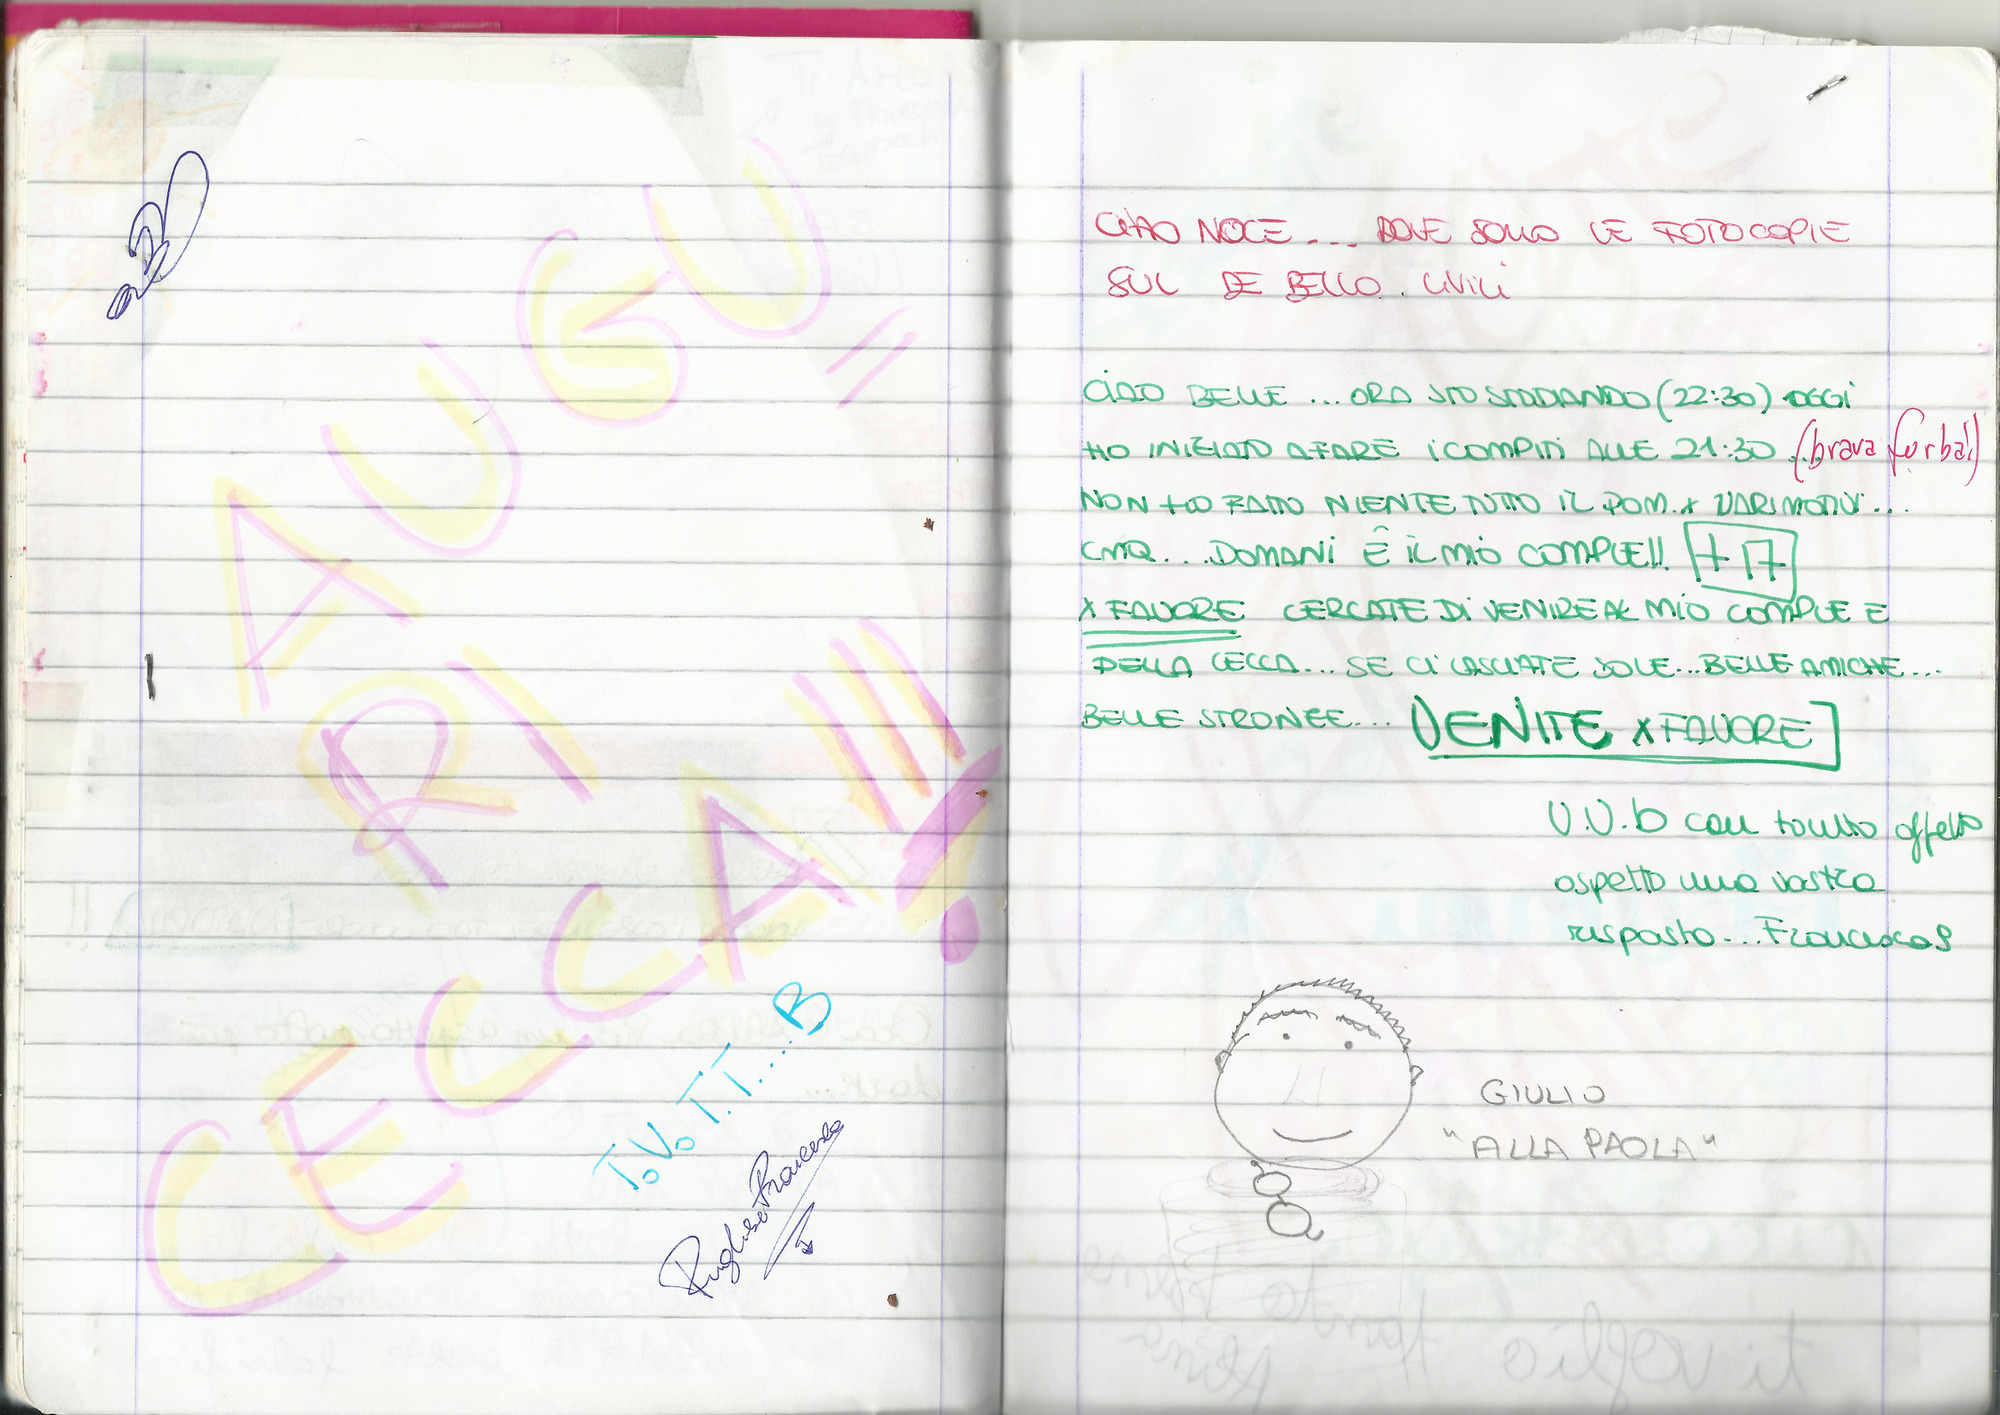 AUGU=
RI
CECCA!!!!
T.V.T.T....B
Francesca
CIAO NOCE.... DOVE SONO LE FOTOCOPIE
SUL DE BELLO. CIVILI
CIAO BELLE... ORA STO STUDIANDO (22:30) OGGI
HO INIZIATO A FARE i COMPITI ALLE 21:30... (brava furba!)
NON HO FATTO NIENTE TUTTO IL POM. x VARI MOTIVI...
CMQ... DOMANI È iL MIO COMPLE!! +17
x FAVORE CERCATE Di VENIRE AL MIO COMPLE E
DELLA CECCA... SE CI LASCIATE SOLE... BELLE AMICHE...
BELLE STRONZE.... VENITE x FAVORE
V.V.b con tanto affetto
aspetto una vostra
risposta... Francesca
GIULIO
"ALLA PAOLA"